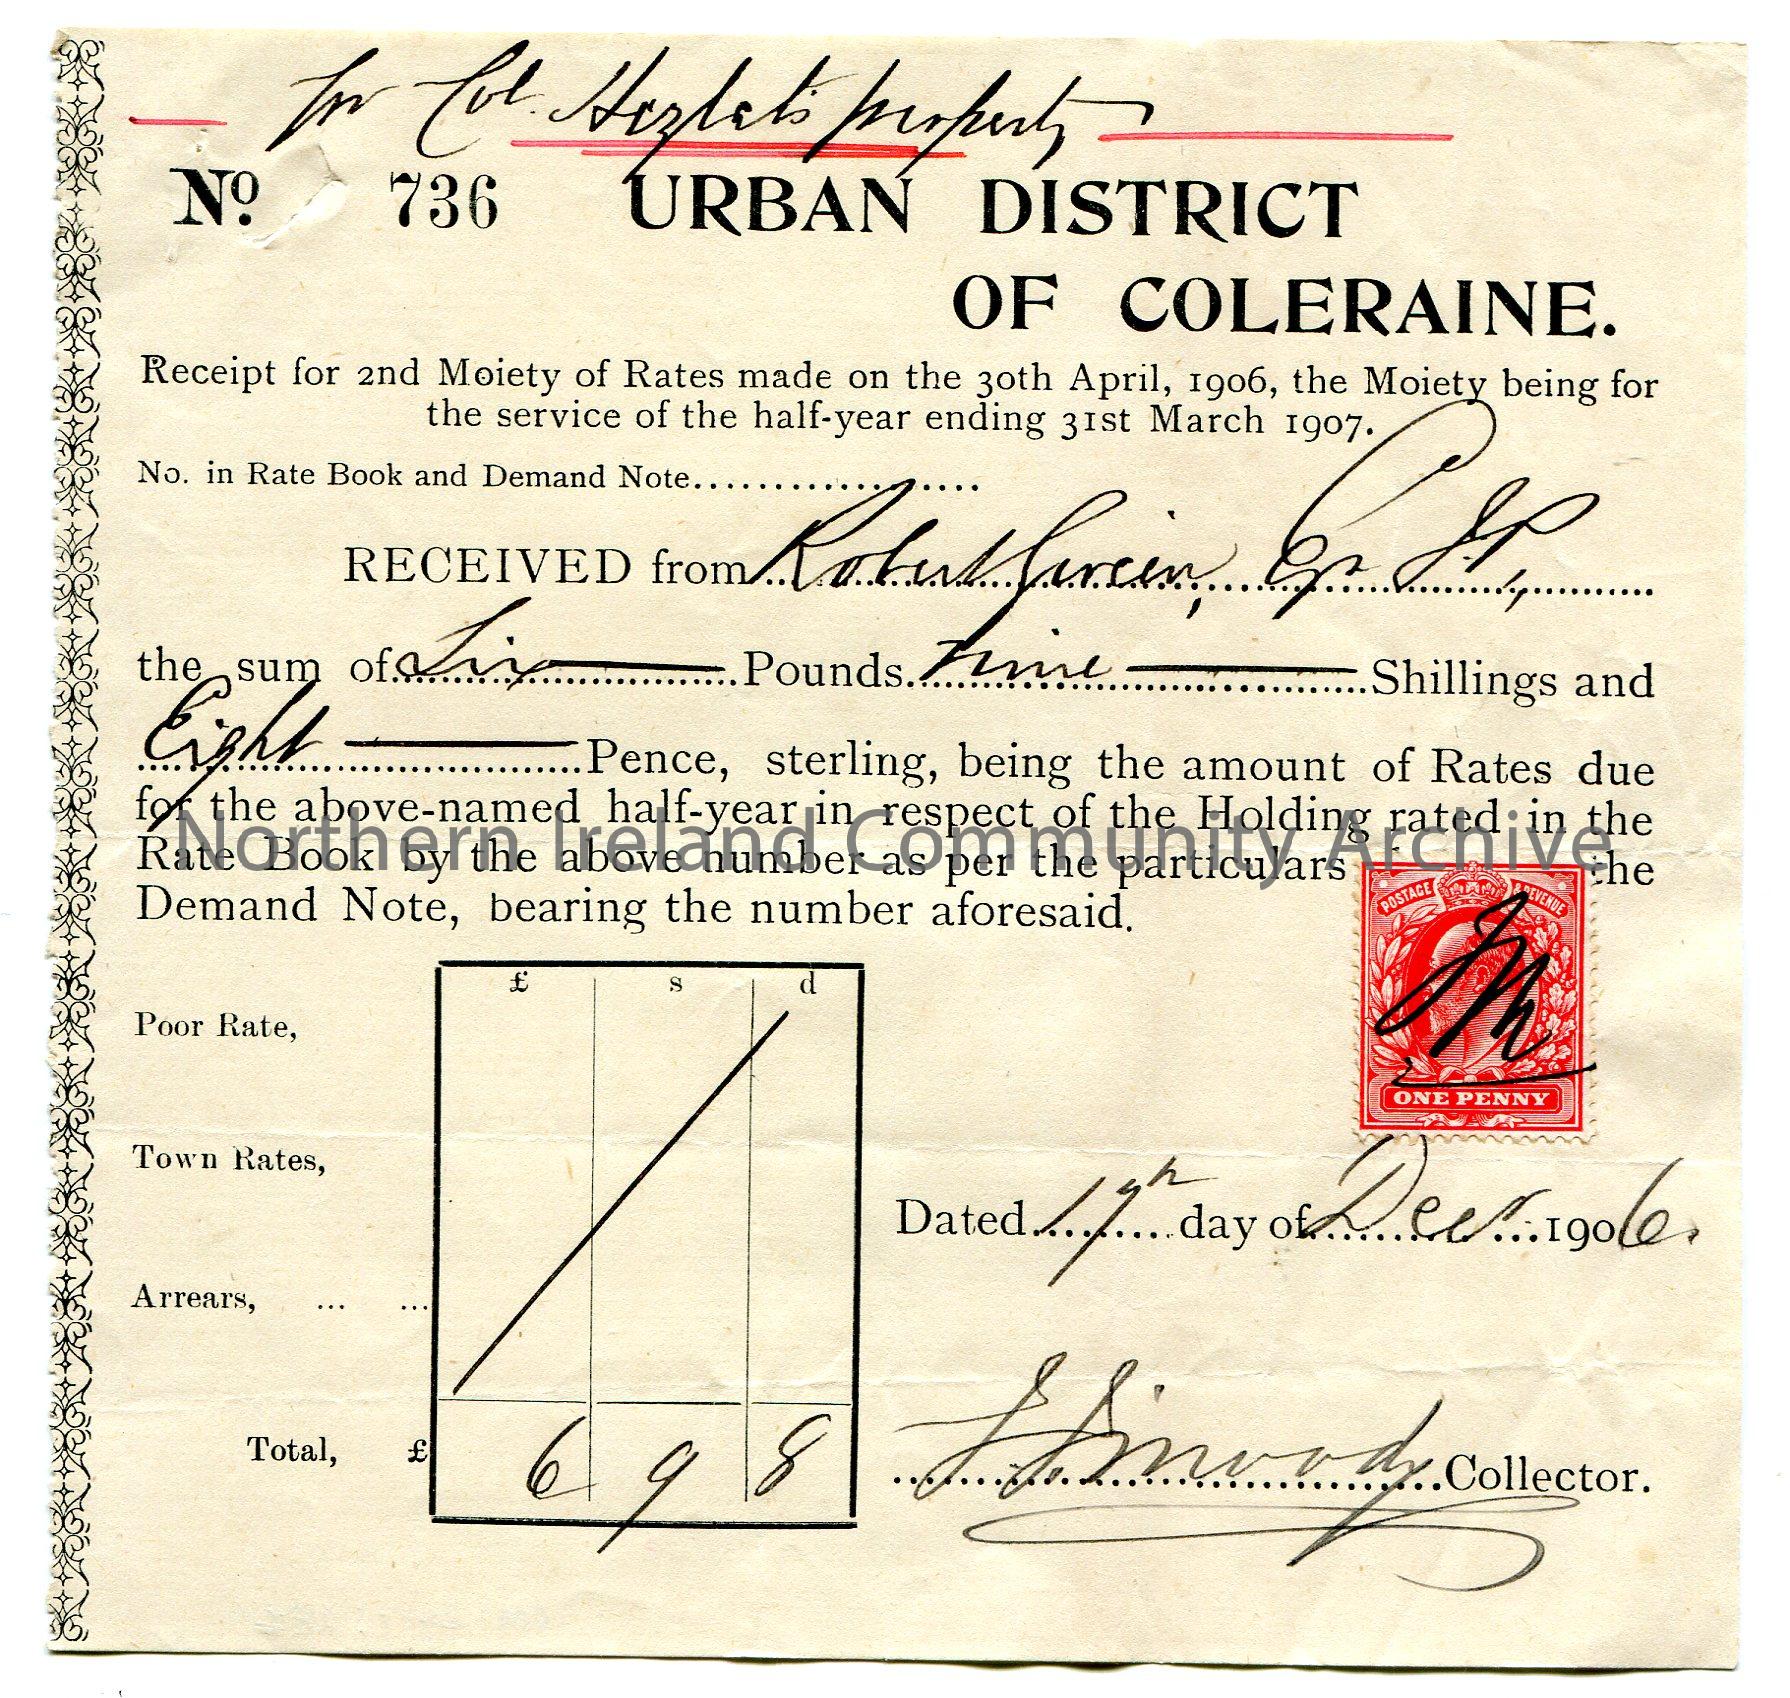 for Col. Hezlet's property
No. 736 URBAN DISTRICT
OF COLERAINE.
Receipt for 2nd Moiety of Rates made on the 30th April, 1906, the Moiety being for
the service of the half-year ending 31st March 1907.
No. in Rate Book and Demand Note...................
RECEIVED from Robert Esqr J.P.,
the sum of Six Pounds Nine Shillings and
Eight Pence, sterling, being the amount of Rates due
for the above-named half-year in respect of the Holding rated in the
Northern Ireland Community Archive
Rate Book by the above number as per the particulars the
Demand Note, bearing the number aforesaid.
POSTAGE & REVENUE
£ s d
Poor Rate,
ONE PENNY
Town Rates,
Dated 17th day of Decr. 1906.
Arrears, ... ...
Total, £ 6 9 8
Collector.